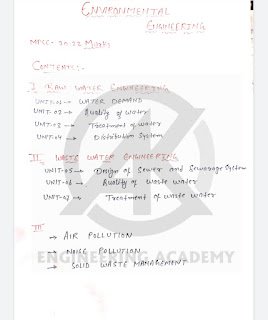 ENVIRONMENTAL
ENGINEERING
MPSC - 20-22 Marks
CONTENTS:-
I RAW WATER ENGINEERING
UNIT-01 → WATER DEMAND
UNIT-02 → Quality of water
UNIT-03 → Treatment of water
UNIT-04 → Distribution System
II WASTE WATER ENGINEERING
UNIT-05 → Design of Sewer and Sewerage System
UNIT-06 → Quality of waste water
UNIT-07 → Treatment of waste water
III
→ AIR POLLUTION
→ NOISE POLLUTION
ENGINEERING ACADEMY
→ SOLID WASTE MANAGEMENT